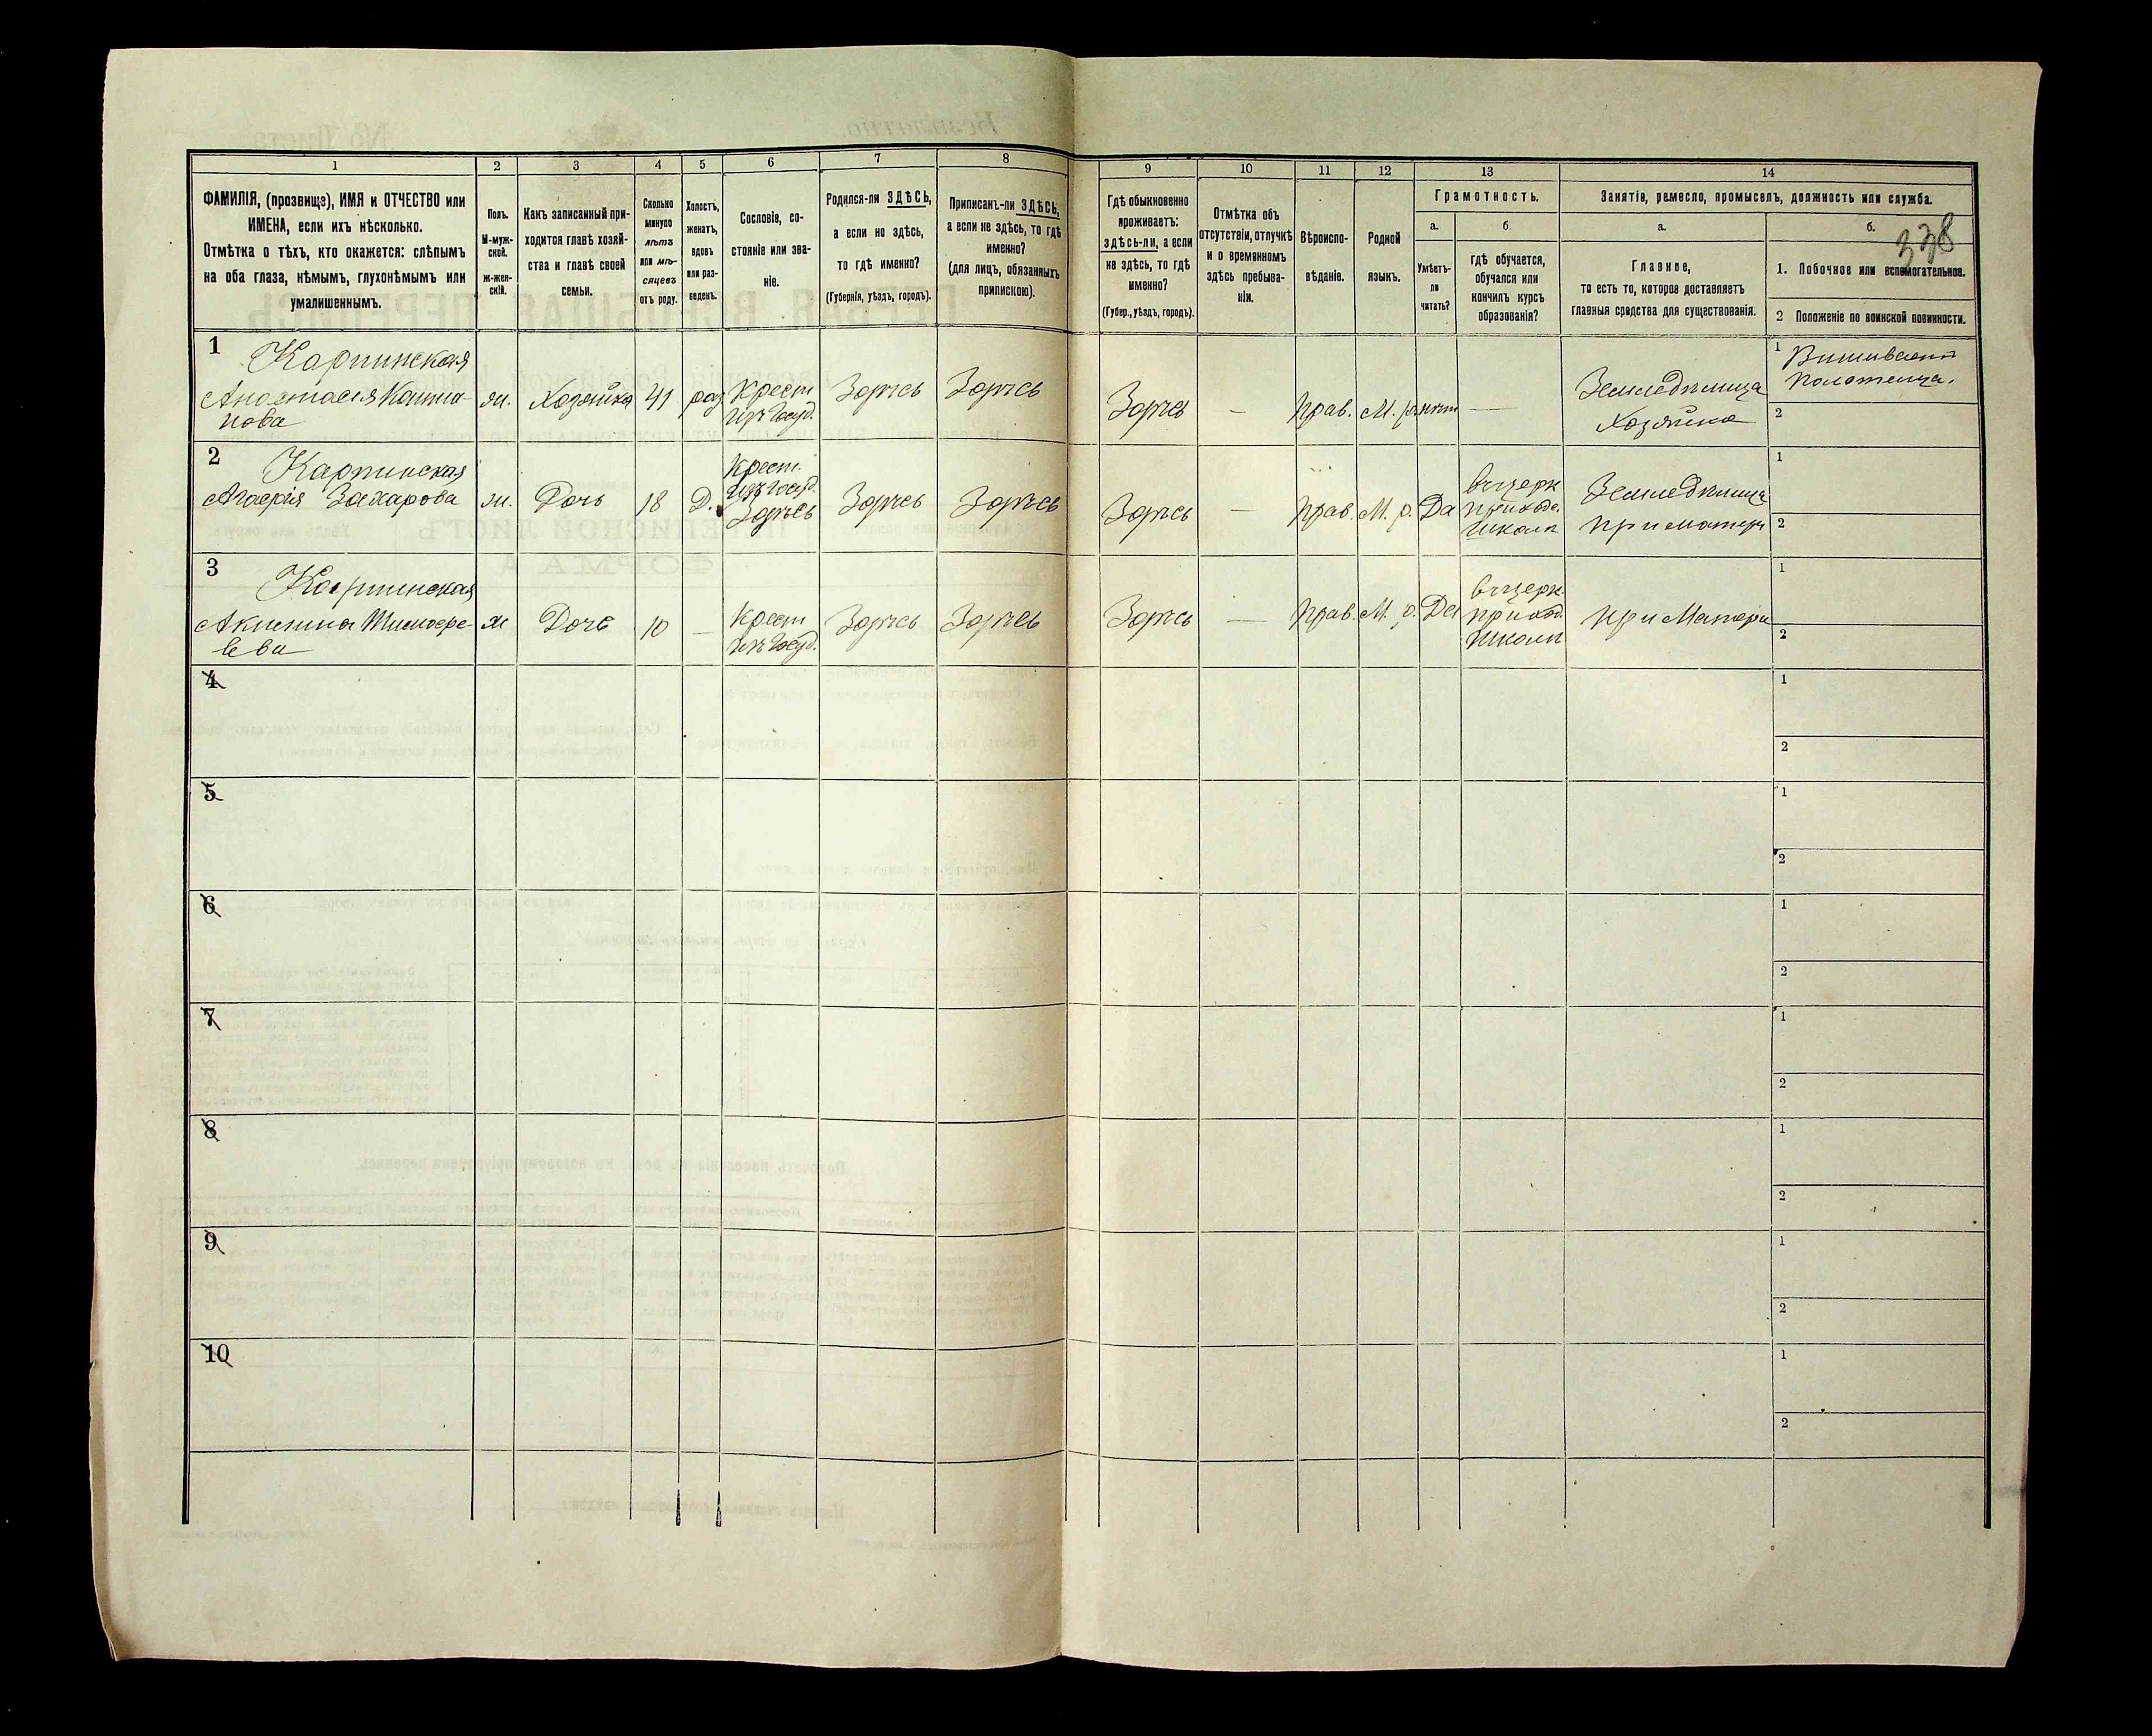 1
2
3
4
5
6
7
8
9
10
11
12
13
14
ФАМИЛІЯ, (прозвище), ИМЯ и ОТЧЕСТВО или
ИМЕНА, если ихъ нѣсколько.
Отмѣтка о тѣхъ, кто окажется: слѣпымъ
на оба глаза, нѣмымъ, глухонѣмымъ или
умалишеннымъ.
Полъ.
М-муж-
ской.
ж-жен-
скій.
Какъ записанный при-
ходится главѣ хозяй-
ства и главѣ своей
семьи.
Сколько
минуло
лѣтъ
или мѣ-
сяцевъ
отъ роду.
Холостъ,
женатъ,
вдовъ
или раз-
веденъ.
Сословіе, со-
стояніе или зва-
ніе.
Родился-ли ЗДѢСЬ,
а если не здѣсь,
то гдѣ именно?
(Губернія, уѣздъ, городъ).
Приписанъ-ли ЗДѢСЬ,
а если не здѣсь, то гдѣ
именно?
(для лицъ, обязанныхъ
припискою).
Гдѣ обыкновенно
проживаетъ:
здѣсь-ли, а если
не здѣсь, то гдѣ
именно?
(Губер., уѣздъ, городъ).
Отмѣтка объ
отсутствіи, отлучкѣ
и о временномъ
здѣсь пребыва-
ніи.
Вѣроиспо-
вѣданіе.
Родной
языкъ.
Грамотность.
а.
Умѣетъ-
ли
читать?
б.
гдѣ обучается,
обучался или
кончилъ курсъ
образованія?
Занятіе, ремесло, промыселъ, должность или служба.
а.
Главное,
то есть то, которое доставляетъ
главныя средства для существованія.
б.
338
1. Побочное или вспомогательное.
2 Положеніе по воинской повинности.
1
Карпинская
Анастасія
нова
ж.
Хозяйка
41
Крест
изъ Госуд.
Здѣсь
Здѣсь
Здѣсь
—
Прав.
М. р.
нѣт
—
Земледѣлица
Хозяйка
1
2
2
Карпинская
Захарова
ж.
Дочь
18
Д.
Крест.
изъ Госуд.
Здѣсь
Здѣсь
Здѣсь
Здѣсь
—
Прав.
М. р.
Да
въ церк
приход.
школѣ
Земледѣлица
при матери
1
2
3
Карпинская
Акилина Тимофе-
ева
ж
Дочь
10
—
Крест
изъ Госуд.
Здѣсь
Здѣсь
Здѣсь
—
Прав.
М. р.
Да
въ церк.
приход.
школѣ
при Матери
1
2
4
1
2
5
1
2
6
1
2
7
1
2
8
1
2
9
1
2
10
1
2